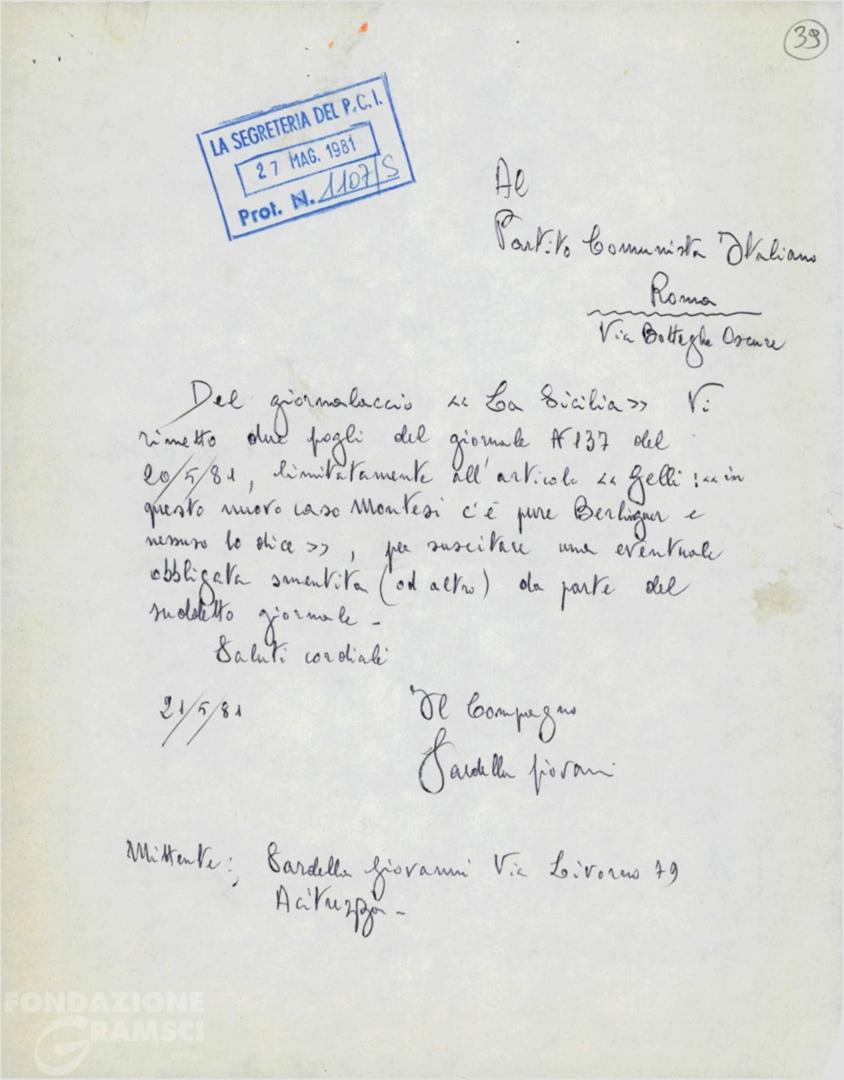 39
LA SEGRETERIA DEL P.C.I.
27 MAG. 1981
Prot. N. 1107/S
Al
Partito Comunista Italiano
Roma
Via Botteghe Oscure
Del giornalaccio << La Sicilia>> Vi
rimetto due fogli del giornale N 137 del
20/5/81, limitatamente all'articolo << Gelli: <<in
questo nuovo caso Montesi c'è pure Berlinguer e
nessuno lo dice >>, per suscitare una eventuale
obbligata smentita (od altro) da parte del
suddetto giornale -
Saluti cordiali
21/5/81
Il Compagno
Sardella Giovanni
Mittente: Sardella Giovanni Via Livorno 79
Acitrezza -
FONDAZIONE
GRAMSCI